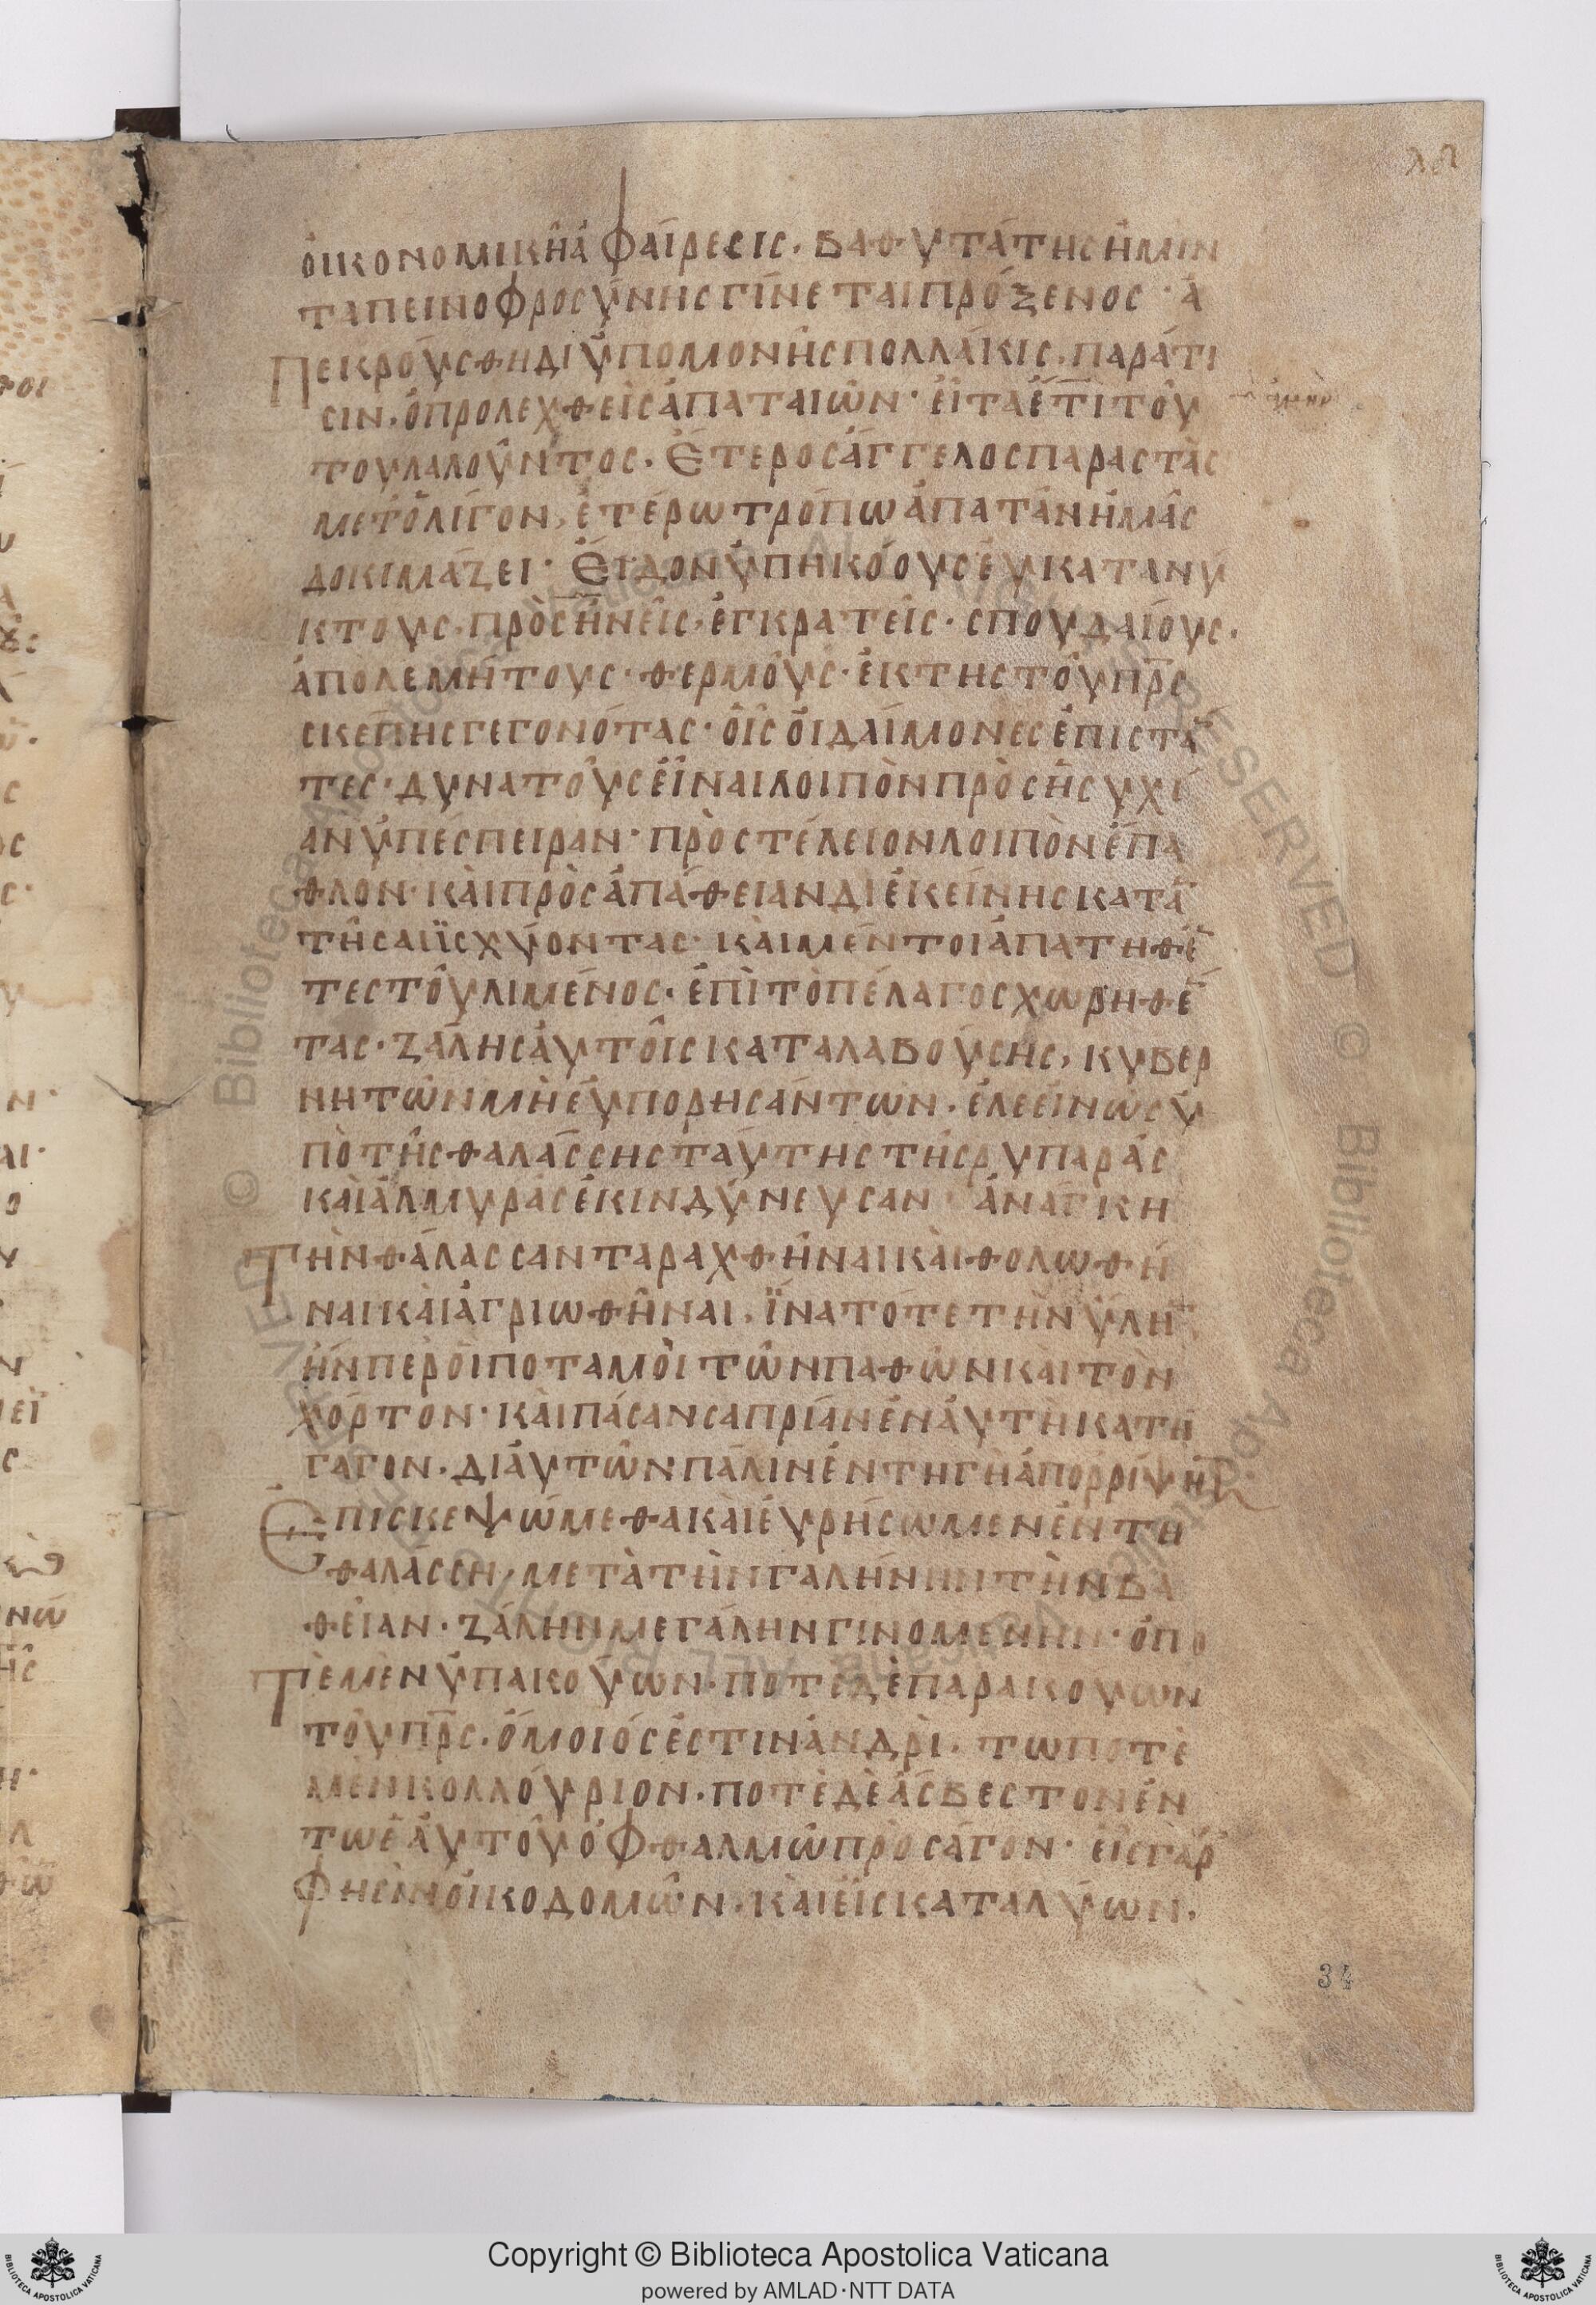 ὀικονομικὴἀφαίρεσις. βαθυτάτησἡμῖν
ταπεινοφροσύνησγίνεταιπρόξενος · ἀ
πεκρούσθηδιὑπομονῆσπολλάκις, παράτι
σιν, ὁπρολεχθεὶσἀπαταιῶν · εἶταἔτιτοῦ
τουλαλοῦντος. ἕτεροσἄγγελοσπαραστὰς
μετὀλίγον, ἑτέρωτρόπωἀπατᾶνἡμᾶς
δοκιμάζει · Εἶδονὑπηκόουσἐυκατανύ
κτους, πρὸσἠνεῖς, ἐγκρατεῖς · σπουδαίους.
ἀπολεμήτους · θερμοὺς · ἐκτηστοῦπρ̅ς
σκέπησγεγονότας · οἷσὁιδαίμονεσἐπιστά̅
τες · δυνατοὺσεἶναιλοιπὸνπρὸσἡσυχί
ανὑπέσπειραν · πρὸστέλειονλοιπὸνἔπα
θλον · κὰιπρὸσἀπάθειανδιἐκείνησκατᾶ
τῆσαιἰσχύοντας · κὰιμέντοιἀπατηθέ̅
τεστοῦλιμένος. ἐπὶτὸπέλαγοσχωρηθέ̅
τας · ζάλησἀυτοῖσκαταλαβούσης, κυβερ
νητῶνμὴἐυπορησάντων. ἐλεεινῶσὑ
πὸτῆσθαλάσσησταύτηστῆσρυπαρᾶς
καὶἁλμυρᾶσἐκινδύνευσαν · ἀνάγκη
Τὴνθάλασσανταραχθῆναικὰιθολωθῆ
ναικὰιἀγριωθῆναι, ἵνατότετὴνὕλη̅
ἥνπερὁιποταμὸιτῶνπαθῶνκαιτὸν
χόρτον · κὰιπᾶσανσαπρίανἐνἀυτῆκατή
γαγον. διἀυτῶνπάλινἐντηγῆἀπορρίψη
Ἐπισκεψώμεθακαὶἑυρήσωμενἐντῆ
θαλάσση, μετὰτὴνγαλήνηντὴνβα
θεῖαν · ζάληνμεγάληνγινομένην · ὁπο
Τὲμὲνὑπακούων. ποτὲδὲπαρακούων
τοῦπρ̅ς. ὅμοιόσἐστινἀνδρὶ. τωποτὲ
μὲνκολλούριον. ποτὲδὲἄσβεστονἐν
τωἑἀυτοῦὀφθαλμῶπροσάγον · εἷσγὰρ
φησὶνὀικοδομῶν. κὰιεἷσκαταλύων.
34
Copyright © Biblioteca Apostolica Vaticana
powered by AMLAD·NTT DATA